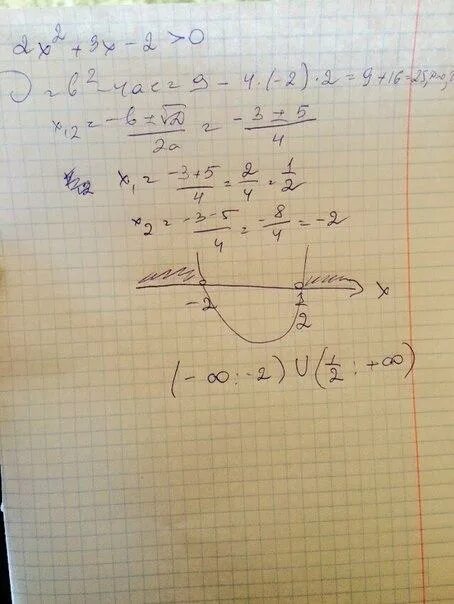 2x² + 3x - 2 > 0
D = b² - 4ac = 9 - 4·(-2)·2 = 9 + 16 = 25,
x₁,₂ = (-b ± √D)/2a = (-3 ± 5)/4
x₁ = (-3+5)/4 = 2/4 = 1/2
x₂ = (-3-5)/4 = -8/4 = -2
-2 1/2 x
(-∞; -2) ∪ (1/2; +∞)